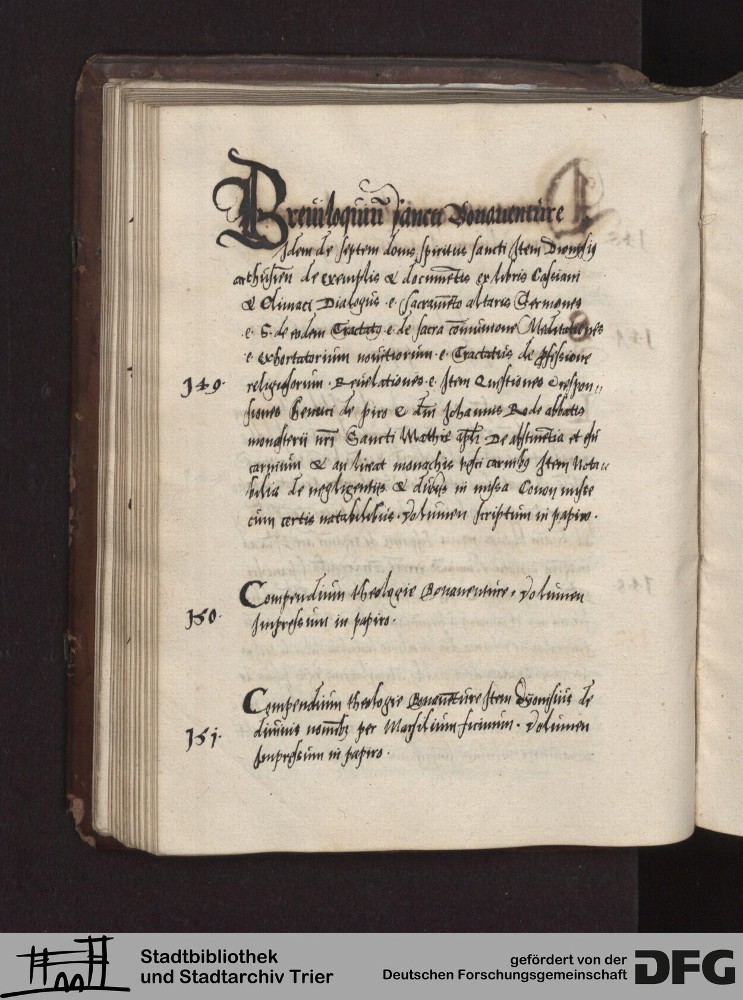 Breuiloquiū sancti Bonauenture
Idem de septem donis spiritus sancti Item Dionisij
de exemplis & documētis ex libris Cassiani
& Climaci Dialogus .e. Sacramēto altaris Sermones
.e. S. de eodem Tractatꝰ .e. de sacra cōmunione Meditationes
.e. exhortatorium nouitiorum .e. Tractatus de ꝓfessione
149. religiosorum . Reuelationes .e. Item Questiones & respon-
siones Henrici de piro & dn̄i Johannis Rode abbatis
monasterii nr̄i Sancti Mathie apl̄i De abstinētia et esu
carnium & an liceat monachis vesci carnibꝰ Item Nota-
bilia de negligentijs & in missa Canon misse
cum certis notabilibus . Volumen scriptum in papiro .
Compendium theologie Bonauenture . Volumen
150. Impressum in papiro .
Compendium theologie Bonauēture Item Dyonisius de
diuinis nomībꝰ per Marsilium ficinum . Volumen
151. Impressum in papiro .
Stadtbibliothek
und Stadtarchiv Trier
gefördert von der
Deutschen Forschungsgemeinschaft
DFG